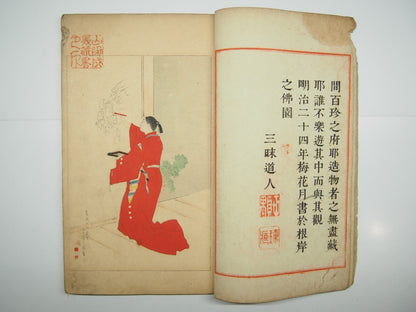 間百珍之府耶造物者之無盡藏
耶誰不樂遊其中而與其觀
明治二十四年梅花月書於根岸
之佛園
三昧道人